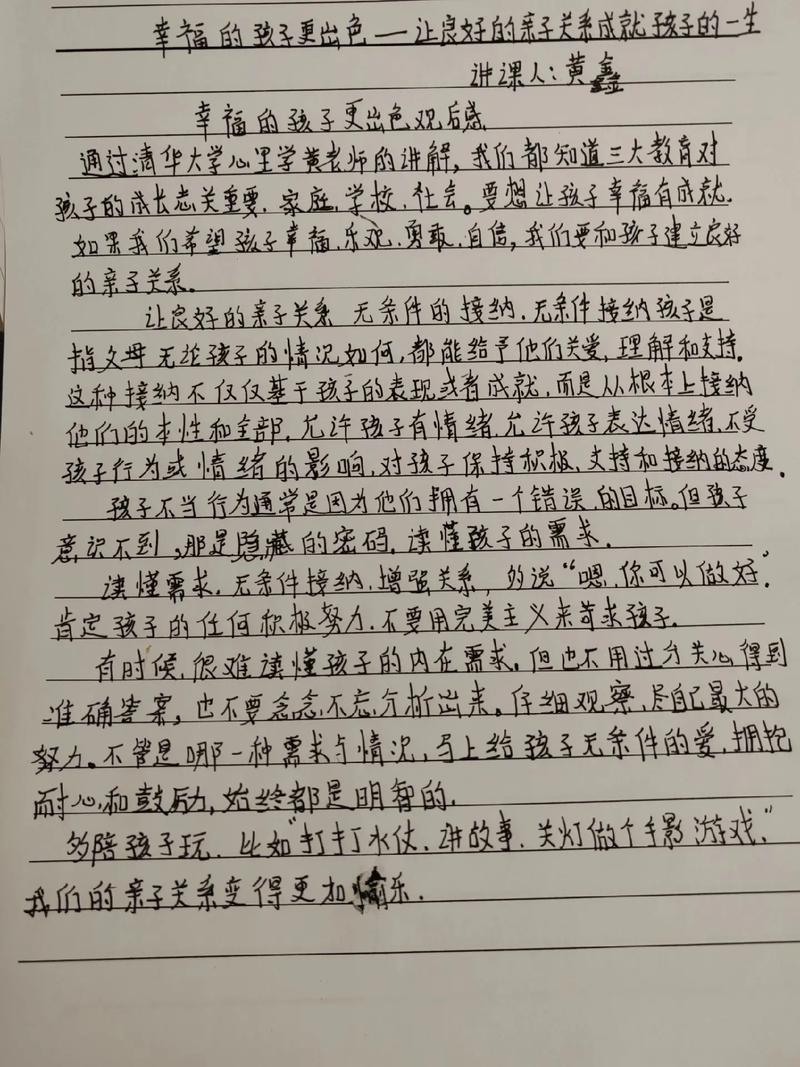 幸福的孩子更出色——让良好的亲子关系成就孩子的一生
讲课人:黄鑫
幸福的孩子更出色观后感
通过清华大学心里学黄老师的讲解,我们都知道三大教育对
孩子的成长志关重要.家庭.学校.社会。要想让孩子幸福有成就.
如果我们希望孩子幸福.乐观.勇敢.自信,我们要和孩子建立良好
的亲子关系.
让良好的亲子关系 无条件的接纳.无条件接纳孩子是
指父母无论孩子的情况如何,都能给予他们关爱,理解和支持.
这种接纳不仅仅基于孩子的表现或者成就,而是从根本上接纳
他们的本性和全部.允许孩子有情绪.允许孩子表达情绪.不受
孩子行为或情绪的影响,对孩子保持积极,支持和接纳的态度.
孩子不当行为通常是因为他们拥有一个错误的目标。但孩子
意识不到,那是隐藏的密码.读懂孩子的需求.
读懂需求.无条件接纳.增强关系,多说“嗯.你可以做好”.
肯定孩子的任何积极努力.不要用完美主义来苛求孩子.
有时候,很难读懂孩子的内在需求。但也不用过分关心得到
准确答案,也不要念念不忘分析出来。仔细观察.尽自己最大的
努力。不管是哪一种需求与情况,马上给孩子无条件的爱,拥抱
耐心和鼓励,始终都是明智的.
多陪孩子玩.比如“打打水仗.讲故事.关灯做个手影游戏.”
我们的亲子关系变得更加愉乐.